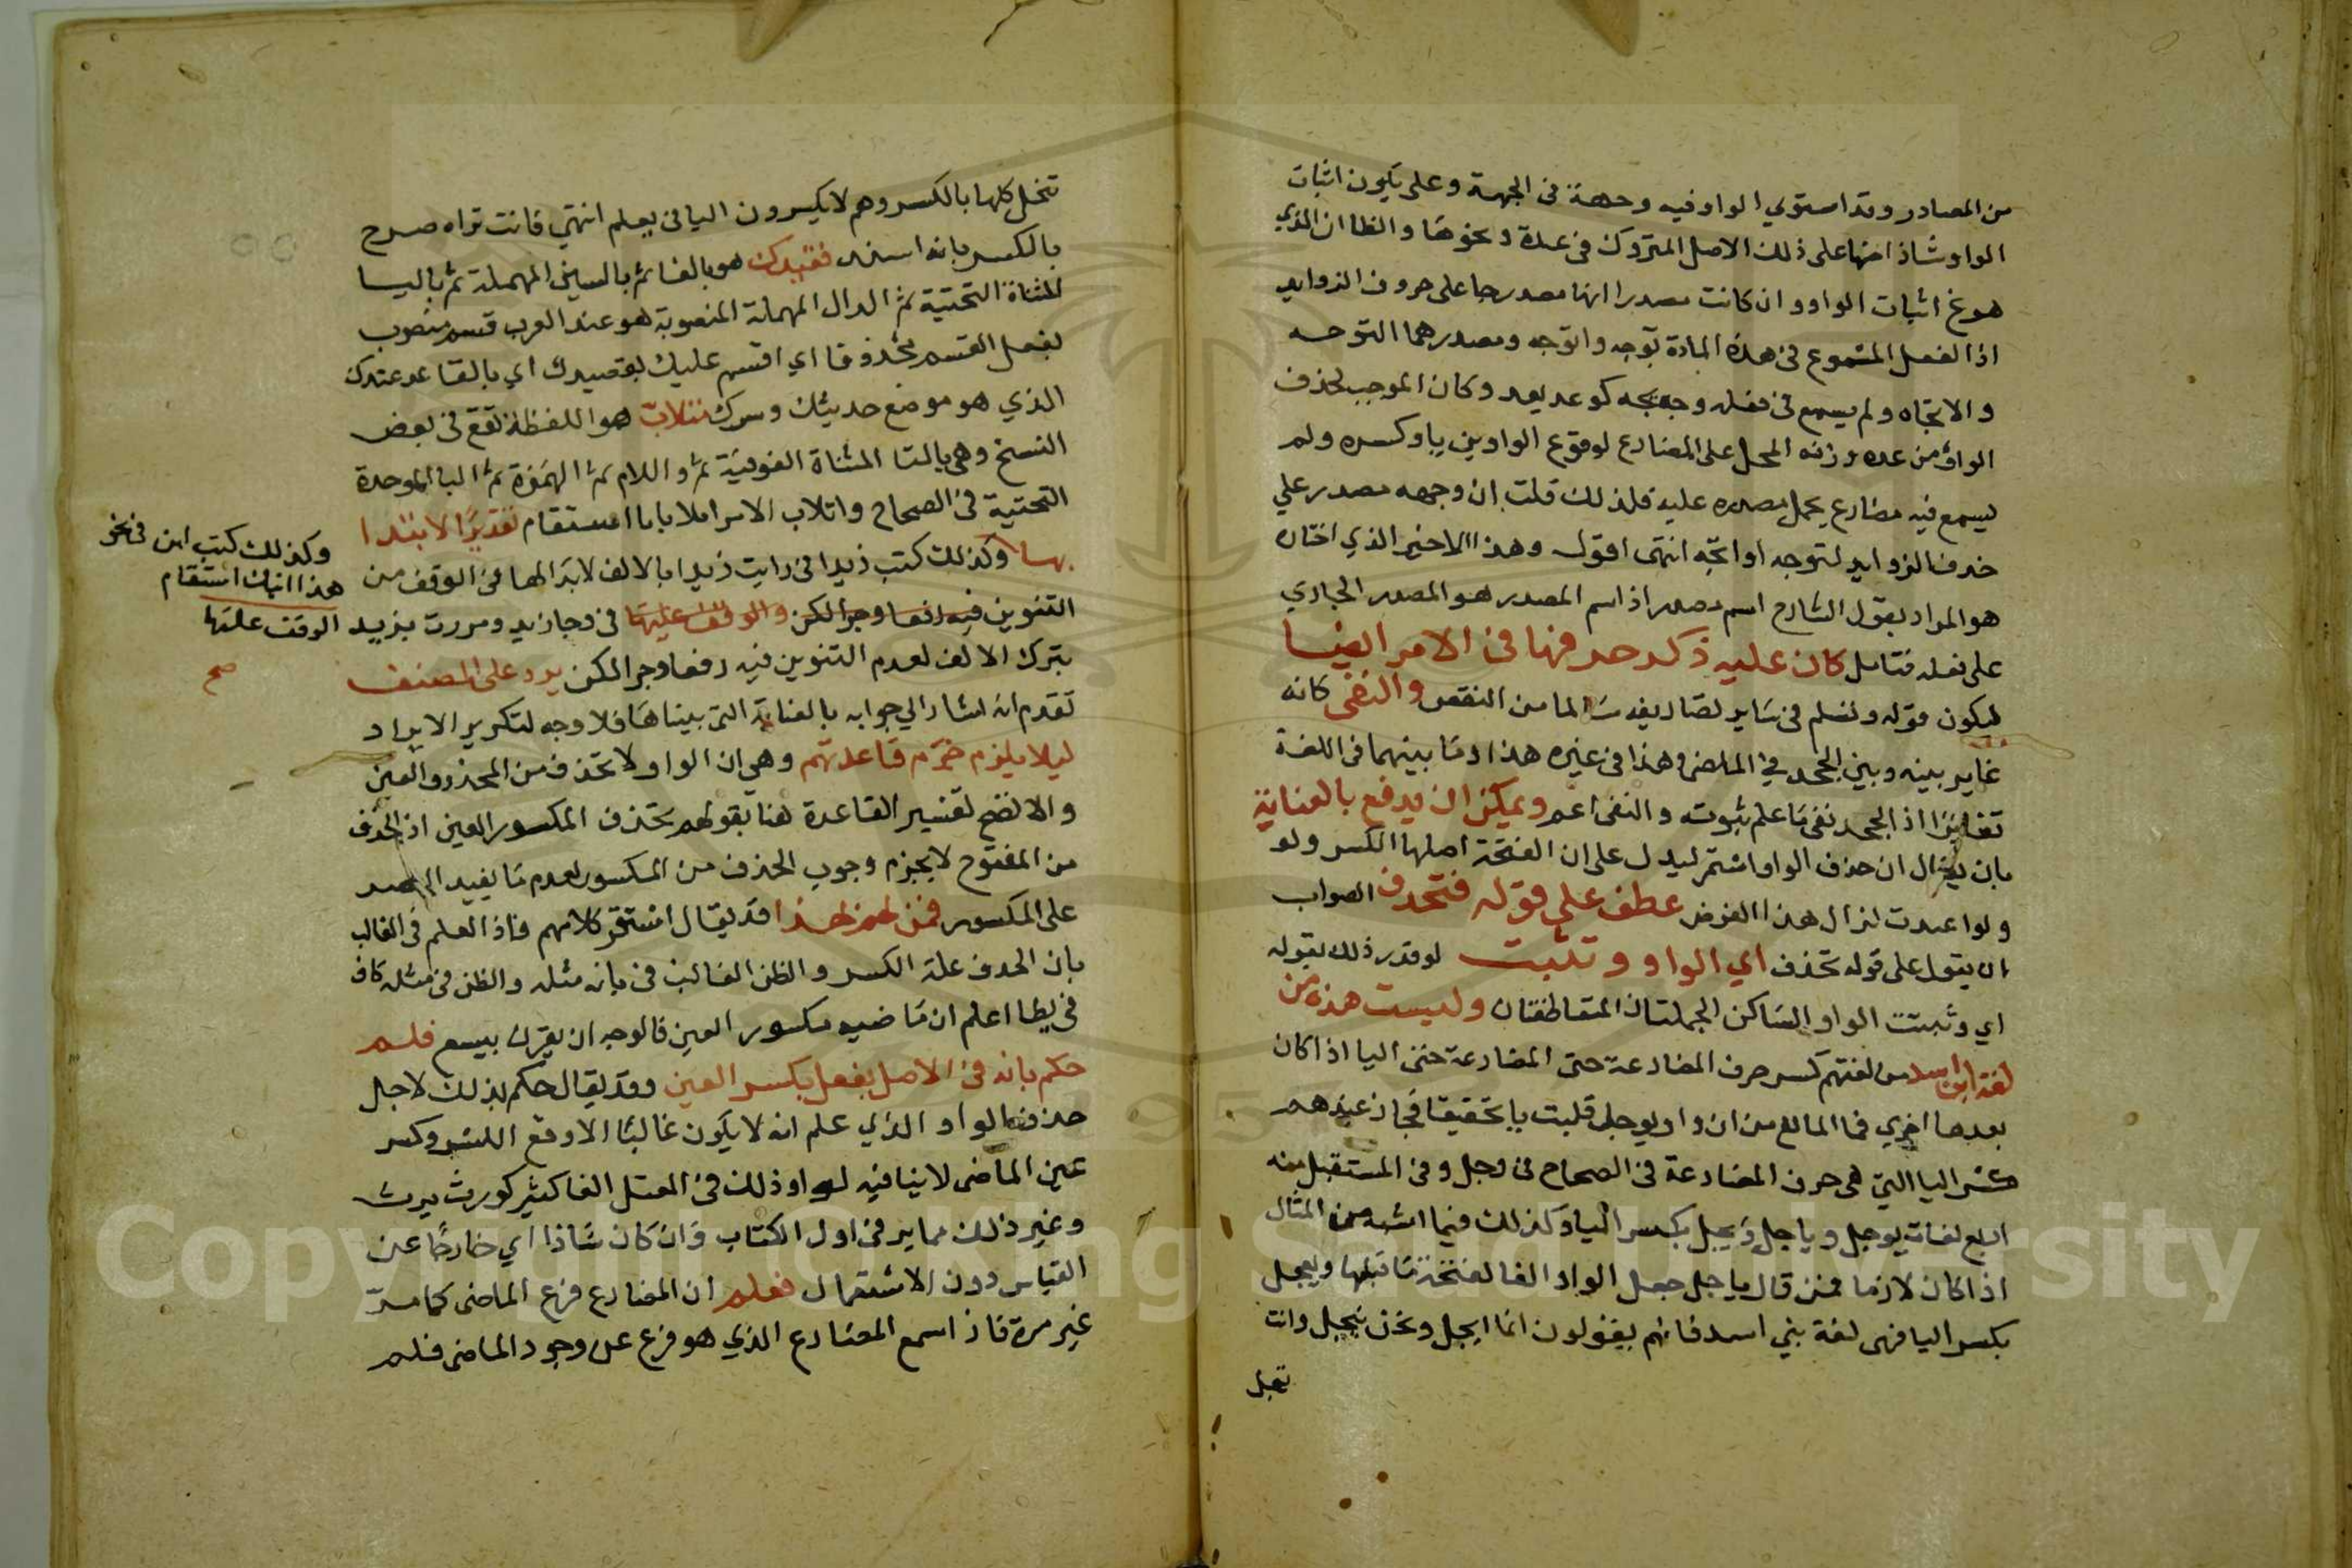 من المصادر وقد استوي الواو فيه وجهة في الجهة وعلى يكون اثبات
الواو شاذا منها على ذلك الاصل المتروك في عدة ونحوها والظا ان الذي
هوغ اثبات الواو وان كانت مصدرا انها مصدر جا على حروف الزوايد
اذ الفعل المسموع في هذه المادة توجه واتوجه ومصدرهما التوجه
والاتجاه ولم يسمع في فعله وجه يجه كوعد يعد وكان الموجب لحذف
الواو من عده وزنه الحمل على المضارع لوقوع الواو بين يا وكسره ولم
يسمع فيه مضارع يحمل مصدره عليه فلذلك قلت ان وجهه مصدر على
حذف الزوايد لتوجه او اتجه انتهى اقول وهذا الاخير الذي اختاره
هو المراد بقول الشارح اسم مصدر اذ اسم المصدر هو المصدر الجاري
على فعله فتامل كان عليه ذكر حذفها في الامر ايضا
ليكون قوله وتسلم في ساير تصاريفه سالما من النقص والنفى كانه
غاير بينه وبين الجحد في الماضى وهذا في غيره هذا وما بينهما في اللغة
تغاير اذ الجحد نفى ما علم ثبوته والنفى اعم ويمكن ان يدفع بالعناية
بان يقال ان حذف الواو استمر ليدل على ان الفتحة اصلها الكسر ولو
ولو اعيدت لزال هذا الغرض عطف على قوله فتحذف الصواب
ان يقول على قوله تحذف اي الواو وتثبت لو قدر ذلك بقوله
اي وثبتت الواو الساكن الجملتان المتعاطفتان وليست هذه من
لغة ابن اسد من لغتهم كسر حرف المضارعة حتى اليا اذا كان
بعدها اخري فما المانع من ان واو يوجل قلبت يا تخفيفا فجاز عندهم
كسر اليا التي هى حرف المضارعة في الصحاح في وجل وفي المستقبل منه
اربع لغات يوجل وياجل وييجل بكسر اليا وكذلك فيما اشبهه من المثال
اذا كان لازما فمن قال ياجل جعل الواو الفا لفتحة ما قبلها وييجل
بكسر اليا فهى لغة بني اسد فانهم يقولون انا ايجل ونحن نيجل وانت
تيجل
تيجل كلها بالكسر وهم لا يكسرون اليا في يعلم انتهي فانت تراه صرح
بالكسر بانه اسند فقيدك هو بالفا ثم بالسين المهملة ثم باليا
المثناة التحتية ثم الدال المهملة المنصوبة هو عند العرب قسم منصوب
بفعل القسم محذوفا اي اقسم عليك بقعيدك اي بالقاعد عندك
الذي هو موضع حديثك وسرك تتلاب هو اللفظة تقع في بعض
النسخ وهى بالتا المثناة الفوقية ثم واللام ثم الهمزة ثم البا الموحدة
التحتية في الصحاح واتلاب الامر اتلابابا استقام تقدير الابتدا
بها وكذلك كتب زيدا في رايت زيدا بالالف لابدالها في الوقف من
التنوين فيه رفعا وجرا لكن والوقف عليها في وجا زيد ومررت بزيد
بترك الالف لعدم التنوين فيه رفعا وجرا لكن يرد على المصنف
تقدم انه اشار الي جوابه بالعناية التي بيناها فلا وجه لتكرير الايراد
ليلا يلزم خرم قاعدتهم وهى ان الواو لا تحذف من المحذرو العين
والاتضح لتفسير القاعدة هنا بقولهم تحذف المكسور العين اذ الحذف
من المفتوح لا يجزم وجوب الحذف من المكسور لعدم ما يفيد الحصر
على المكسور فمن لهم لهذا قد يقال استقر كلامهم فاذ العلم في الغالب
بان الحذف علة الكسر والظن الغالب في بانه مثله والظن في مثله كاف
في يطا اعلم ان ماضيه مكسور العين فالوجه ان يقرن بيسع فلم
حكم بانه في الاصل يفعل بكسر العين وقد يقال حكم بذلك لاجل
حذف الواو الذي علم انه لا يكون غالبا الا وقع الكسر وكسر
عين الماضى لا ينافيه لورود ذلك في المعتل الفا كثير كورث يرث
وغير ذلك مما ير في اول الكتاب وان كان شاذا اي خارجا عن
القياس دون الاستعمال فعلم ان المضارع فرع الماضى كما مر
غير مرة فاذ اسمع المضارع الذي هو فرع عل وجود الماضى فلم
وكذلك كتب ابن في نحو
هذا اتلاب استقام
الوقف عليها
صح
Copyright © King Saud University
1957